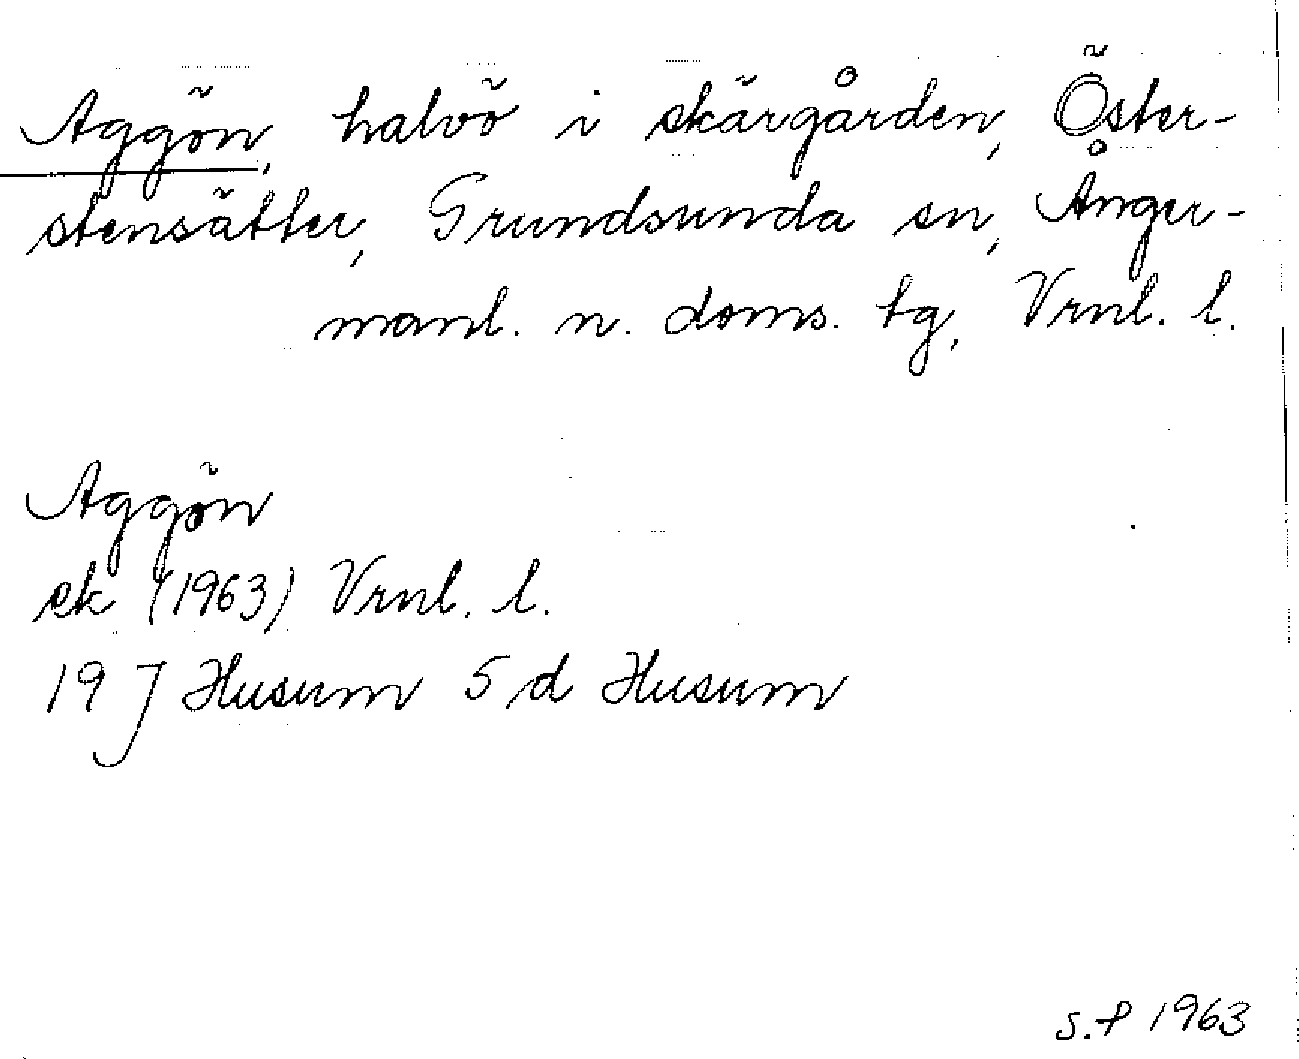 Aggön, halvö i skärgården, Öster-
stensätter, Grundsunda sn, Ånger-
manl. n. doms. tg, Vrnl. l.
Aggön
ek (1963) Vrnl. l.
19 J Husum 5 d Husum
S.P 1963